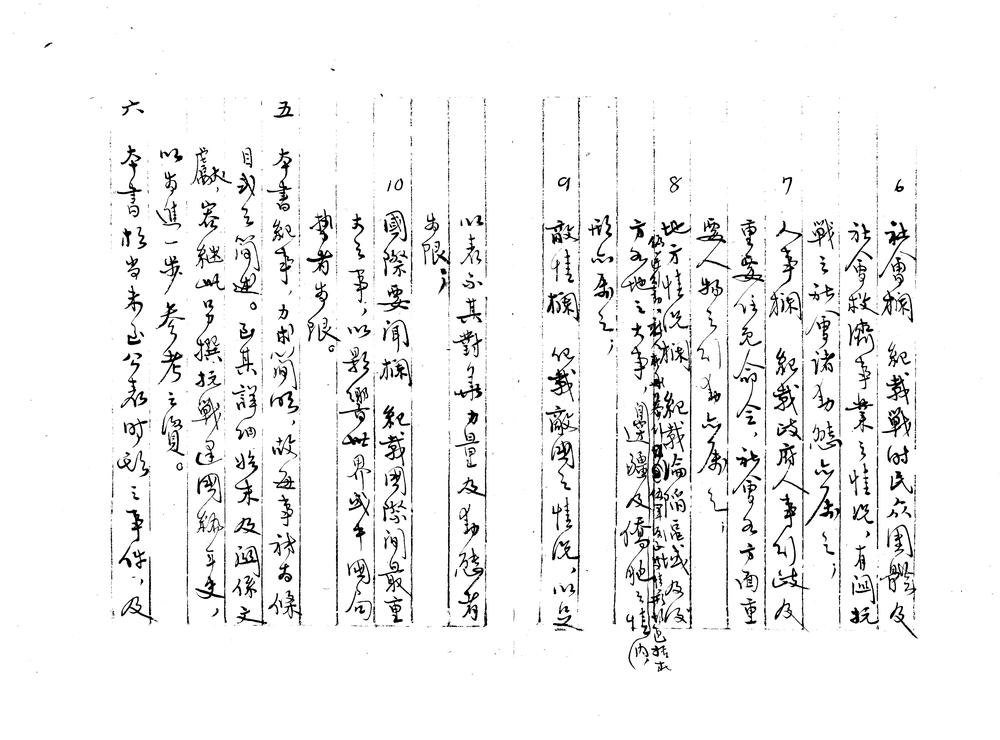 6 社會欄 紀載戰時民众團體及
社會救濟事業之情況，有関抗
戰之社會諸動態亦屬之；
7 人事欄 紀載政府人事行政及
重要任免命令，社會各方面重
要人物之行動亦屬之；
8 地方情況欄 紀載淪陷區域及後
方各地之大事，邊疆及僑胞之情
形亦屬之；
9 敵情欄 紀載敵國之情況，以足
以表示其對華力量及動態者
为限；
10 國際要聞欄 紀載國際间最重
大之事，以影響世界或中國局
勢者为限。
五 本書紀事，力求简明，故每事祇为條
目式之简述。至其詳细始末及関係文
獻，容繼此另撰抗戰建國編年史，
以为進一步参考之資。
六 本書於当未正公表時顾之事件，及